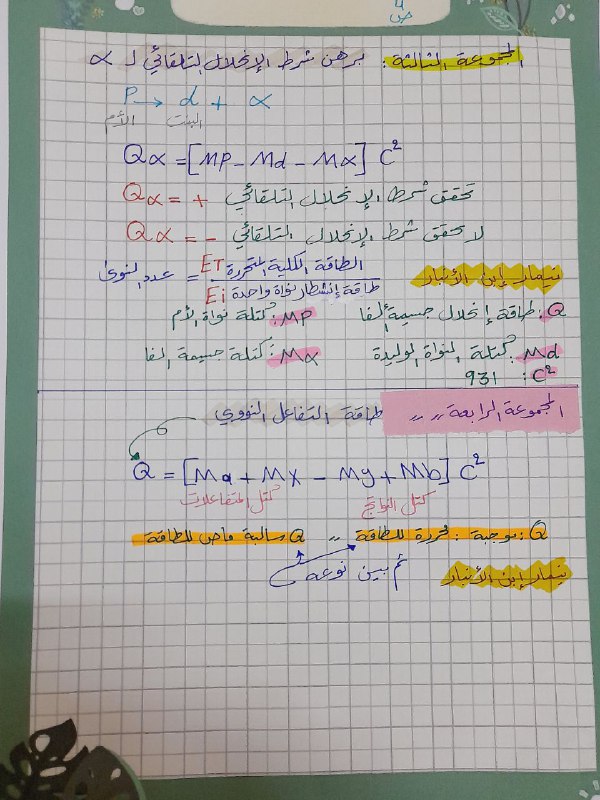 ص 4
المجموعة الثالثة: برهن شرط الإنحلال التلقائي لـ α
P → d + α
الأم البنت
Qα = [MP - Md - Mα] C²
Qα = + تحقق شرط الإنحلال التلقائي
Qα = - لا يحقق شرط الإنحلال التلقائي
عدد النوى = الطاقة الكلية المتحررة ET
طاقة إنشطار نواة واحدة Ei
إبن الأنبار
Q: طاقة إنحلال جسيمة ألفا MP: كتلة نواة الأم
Md: كتلة النواة الوليدة Mα: كتلة جسيمة الفا
C²: 931
المجموعة الرابعة ,, ,, طاقة التفاعل النووي
Q = [Ma + Mx - My + Mb] C²
كتل المتفاعلات كتل النواتج
Q: موجبة: محررة للطاقة ,, Q سالبة ماص للطاقة
ثم بين نوعه
إبن الأنبار